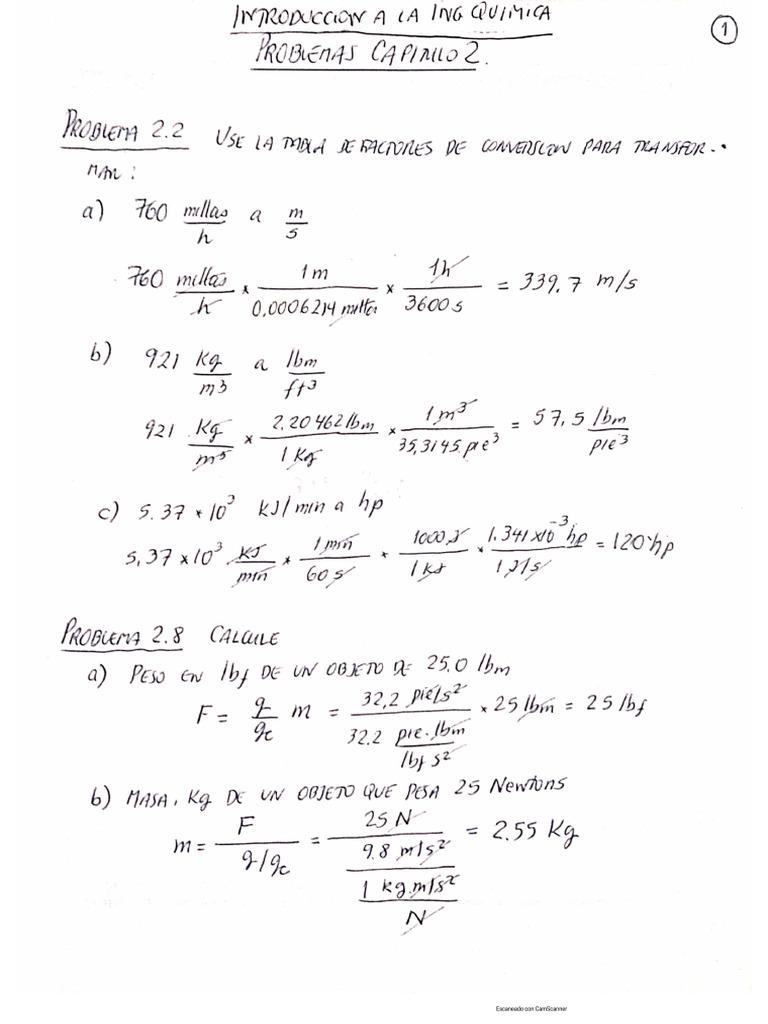 INTRODUCCION A LA ING QUIMICA
1
PROBLEMAS CAPITULO 2.
PROBLEMA 2.2 USE LA TABLA DE FACTORES DE CONVERSION PARA TRANSFOR-
MAR:
a) 760 millas/h a m/s
760 millas/h × 1m/0,0006214 millas × 1h/3600 s = 339,7 m/s
b) 921 Kg/m3 a lbm/ft³
921 Kg/m³ × 2,20462 lbm/1 Kg × 1 m³/35,3145 pie³ = 57,5 lbm/pie³
c) 5.37 * 10³ kJ/min a hp
5,37 × 10³ kJ/min × 1 min/60 s × 1000 J/1 kJ × 1.341×10⁻³ hp/1 J/s = 120 hp
PROBLEMA 2.8 CALCULE
a) PESO EN lbf DE UN OBJETO DE 25.0 lbm
F = g/gc m = 32,2 pie/s²/32.2 pie·lbm/lbf s² × 25 lbm = 25 lbf
b) MASA, Kg DE UN OBJETO QUE PESA 25 Newtons
m = F/g/gc = 25 N/9.8 m/s²/1 kg.m/s²/N = 2.55 Kg
Escaneado con CamScanner